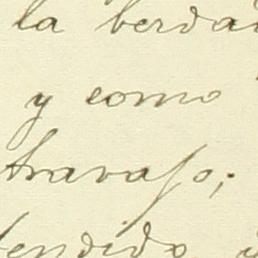 la berda
y como
travajo;
endido